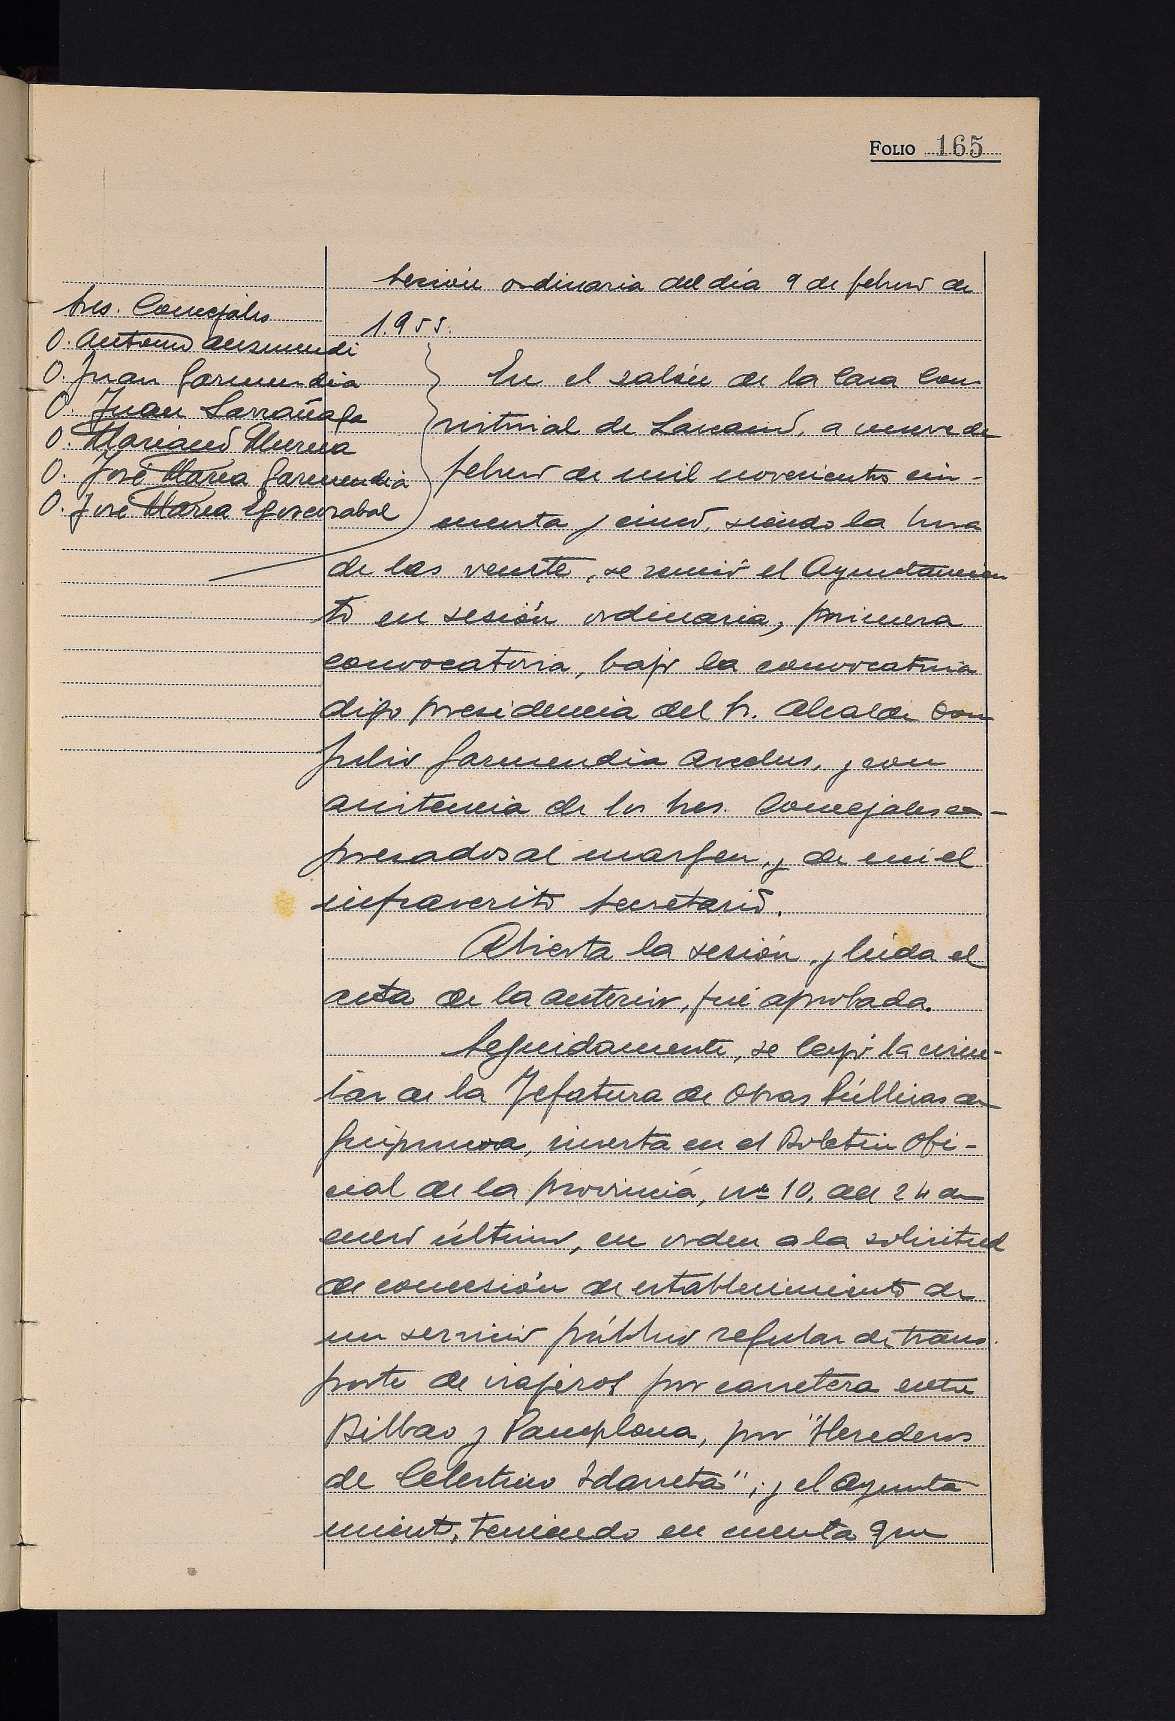 FOLIO 165
Sesión ordinaria del día 9 de febrero de
1.955.
Sres. Concejales
D. Antonio Aurmendi
D. Juan Garmendia
D. Juan Larrañaga
D. Mariano Murua
D. José María Garmendia
D. José María Egoscozabal
En el salón de la Casa Con-
sistorial de Lazcano, a nueve de
febrero de mil novecientos cin-
cuenta y cinco, siendo la hora
de las veinte, se reunió el Ayuntamien
to en sesión ordinaria, primera
convocatoria, bajo la convocatoria
digo presidencia del Sr. Alcalde Don
Julio Garmendia y con
asistencia de los Sres. Concejales ex-
presados al margen, y de mi el
infrascrito Secretario.
Abierta la sesión, y leída el
acta de la anterior, fué aprobada.
Seguidamente, se leyó la circu-
lar de la Jefatura de Obras Públicas de
Guipuzcoa, inserta en el Boletín Ofi-
cial de la provincia, nº 10, del 24 de
enero último, en orden a la solicitud
de concesión de establecimiento de
un servicio público regular de trans-
porte de viajeros por carretera entre
Bilbao y Pamplona, por "Herederos
de Celestino Idarreta"; y el Ayunta
miento, teniendo en cuenta que